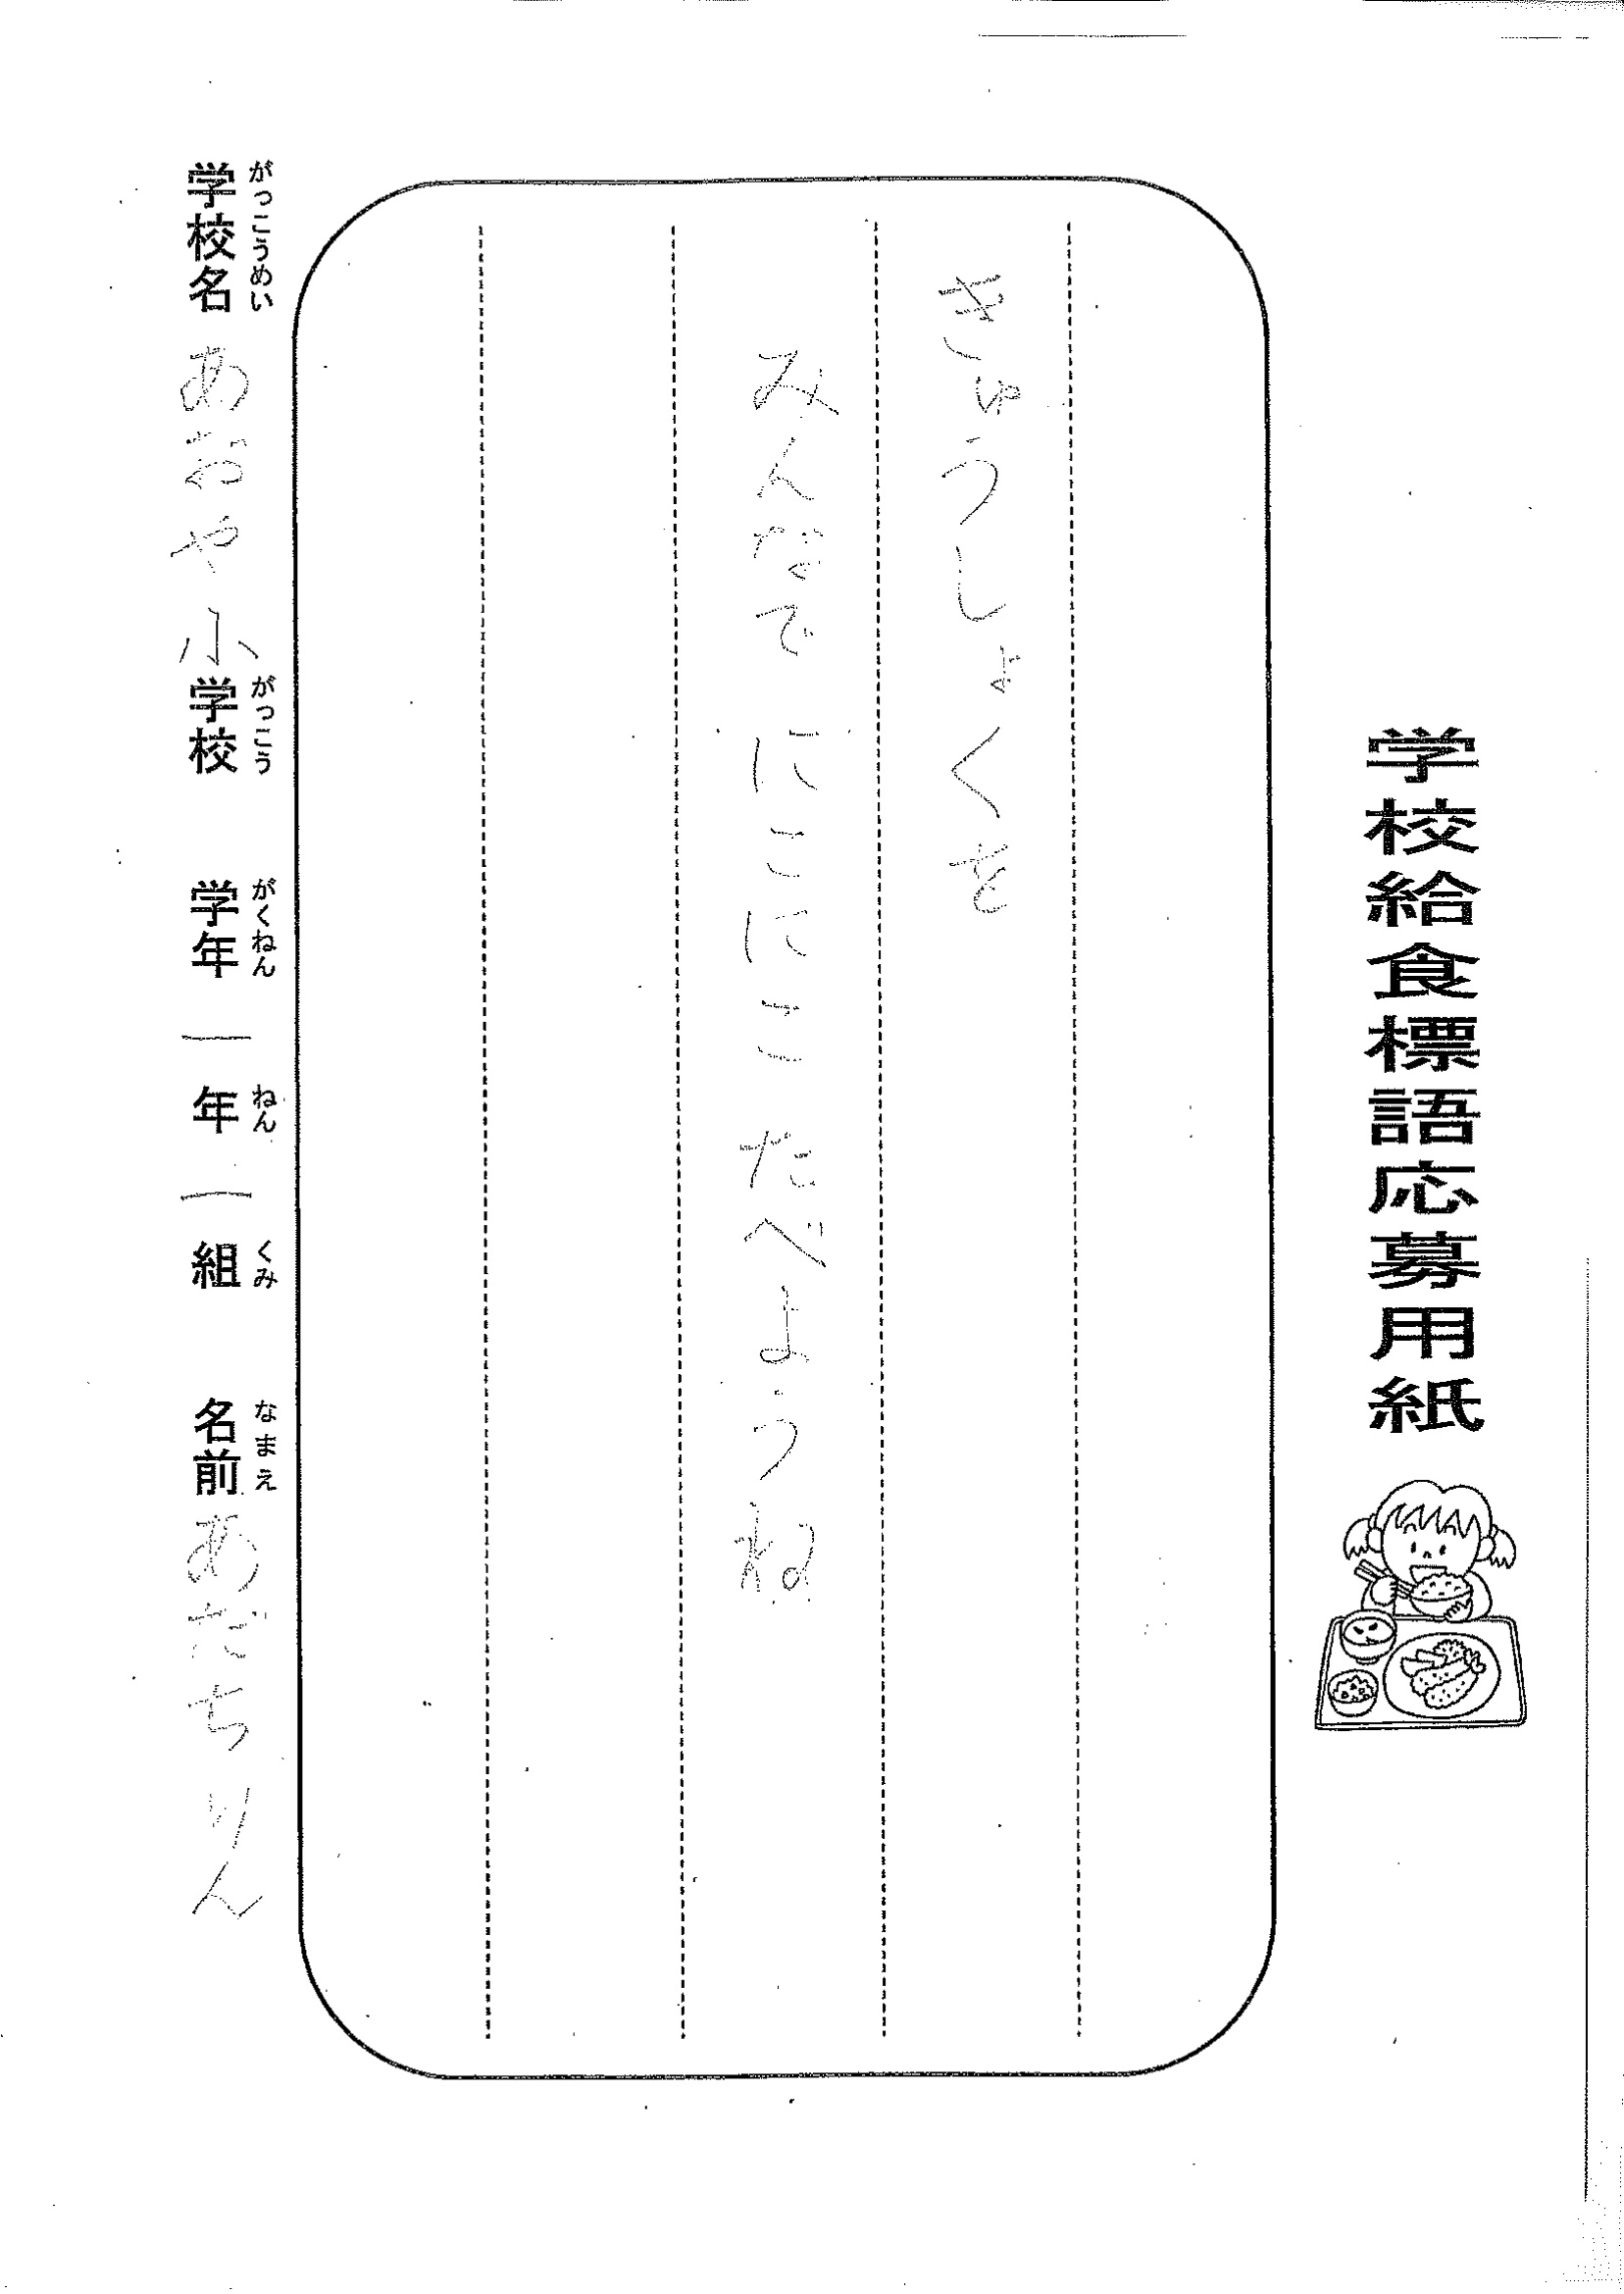 学校給食標語応募用紙
きゅうしょくを
みんなで にこにこ たべようね
学校名 あおや小学校 学年 一年 一組 名前 あだち りん
がっこうめい がっこう がくねん ねん くみ なまえ